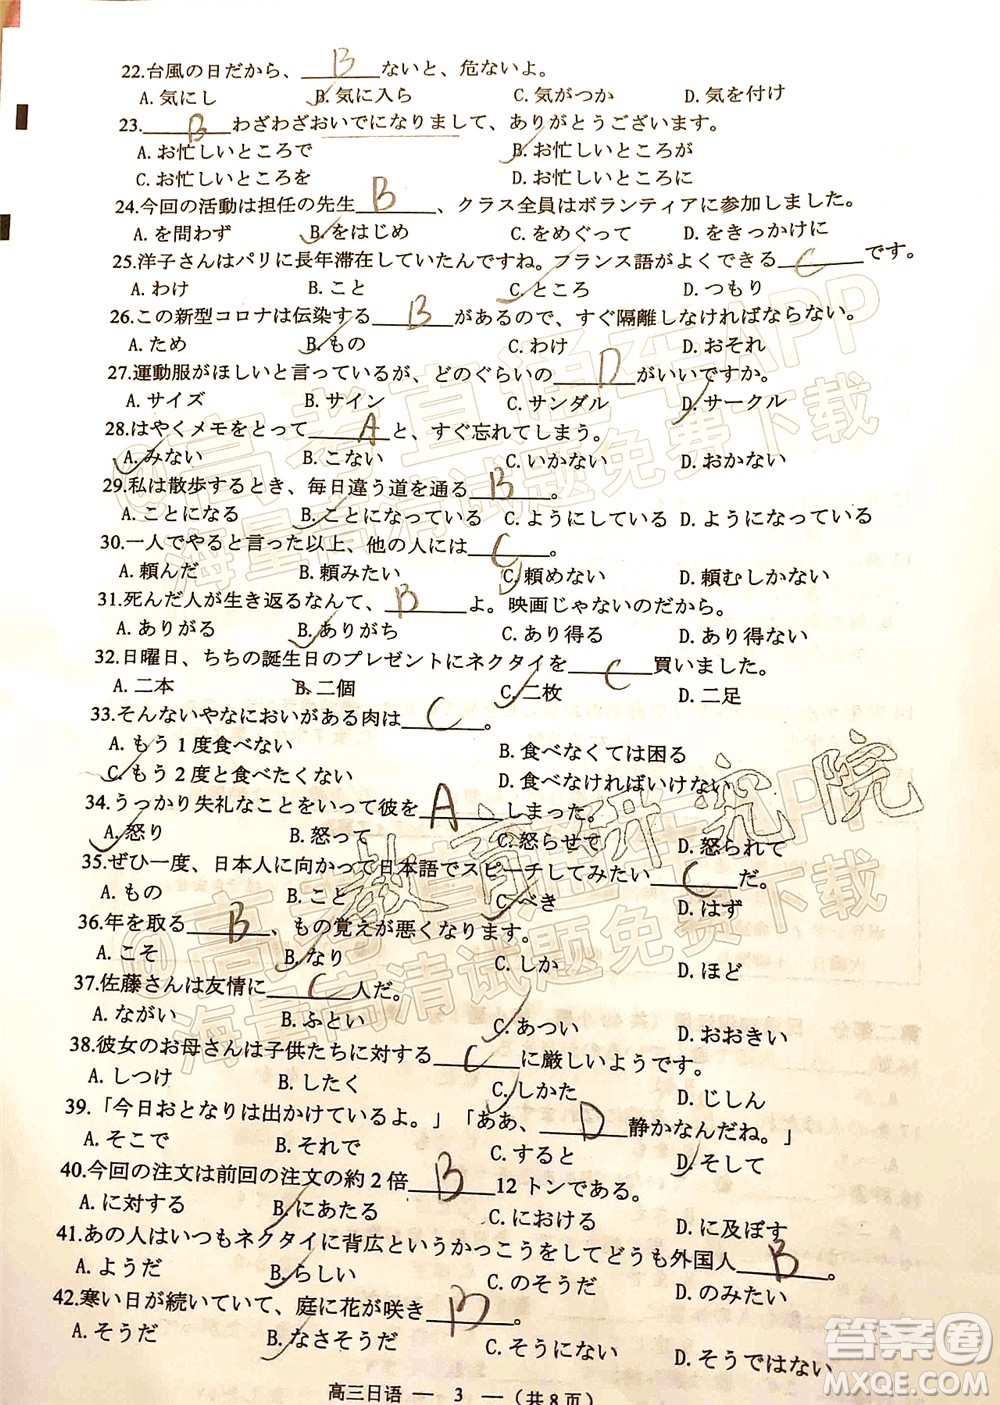 22.台風の日だから、 B ないと、危ないよ。
A. 気にし B. 気に入ら C. 気がつか D. 気を付け
23. B わざわざおいでになりまして、ありがとうございます。
A. お忙しいところで B. お忙しいところが
C. お忙しいところを D. お忙しいところに
24.今回の活動は担任の先生 B 、クラス全員はボランティアに参加しました。
A. を問わず B. をはじめ C. をめぐって D. をきっかけに
25.洋子さんはパリに長年滞在していたんですね。フランス語がよくできる C です。
A. わけ B. こと C. ところ D. つもり
26.この新型コロナは伝染する B があるので、すぐ隔離しなければならない。
A. ため B. もの C. わけ D. おそれ
27.運動服がほしいと言っているが、どのぐらいの D がいいですか。
A. サイズ B. サイン C. サンダル D. サークル
28.はやくメモをとって A と、すぐ忘れてしまう。
A. みない B. こない C. いかない D. おかない
29.私は散歩するとき、毎日違う道を通る B 。
A. ことになる B. ことになっている C. ようにしている D. ようになっている
30.一人でやると言った以上、他の人には C 。
A. 頼んだ B. 頼みたい C. 頼めない D. 頼むしかない
31.死んだ人が生き返るなんて、 B よ。映画じゃないのだから。
A. ありがる B. ありがち C. あり得る D. あり得ない
32.日曜日、ちちの誕生日のプレゼントにネクタイを C 買いました。
A. 二本 B. 二個 C. 二枚 D. 二足
33.そんないやなにおいがある肉は C 。
A. もう1度食べない B. 食べなくては困る
C. もう2度と食べたくない D. 食べなければいけない
34.うっかり失礼なことをいって彼を A しまった。
A. 怒り B. 怒って C. 怒らせて D. 怒られて
35.ぜひ一度、日本人に向かって日本語でスピーチしてみたい C だ。
A. もの B. こと C. べき D. はず
36.年を取る B 、もの覚えが悪くなります。
A. こそ B. なり C. しか D. ほど
37.佐藤さんは友情に C 人だ。
A. ながい B. ふとい C. あつい D. おおきい
38.彼女のお母さんは子供たちに対する C に厳しいようです。
A. しつけ B. したく C. しかた D. じしん
39.「今日おとなりは出かけているよ。」「ああ、 D 静かなんだね。」
A. そこで B. それで C. すると D. そして
40.今回の注文は前回の注文の約2倍 B 12トンである。
A. に対する B. にあたる C. における D. に及ぼす
41.あの人はいつもネクタイに背広というかっこうをしてどうも外国人 B 。
A. ようだ B. らしい C. のそうだ D. のみたい
42.寒い日が続いていて、庭に花が咲き B 。
A. そうだ B. なさそうだ C. そうにない D. そうではない
高三日语 — 3 — (共8页)
@高考直通车APP
海量高清试题免费下载
教育研究院
@高考直通车APP
海量高清试题免费下载
答案圈
MXQE.COM